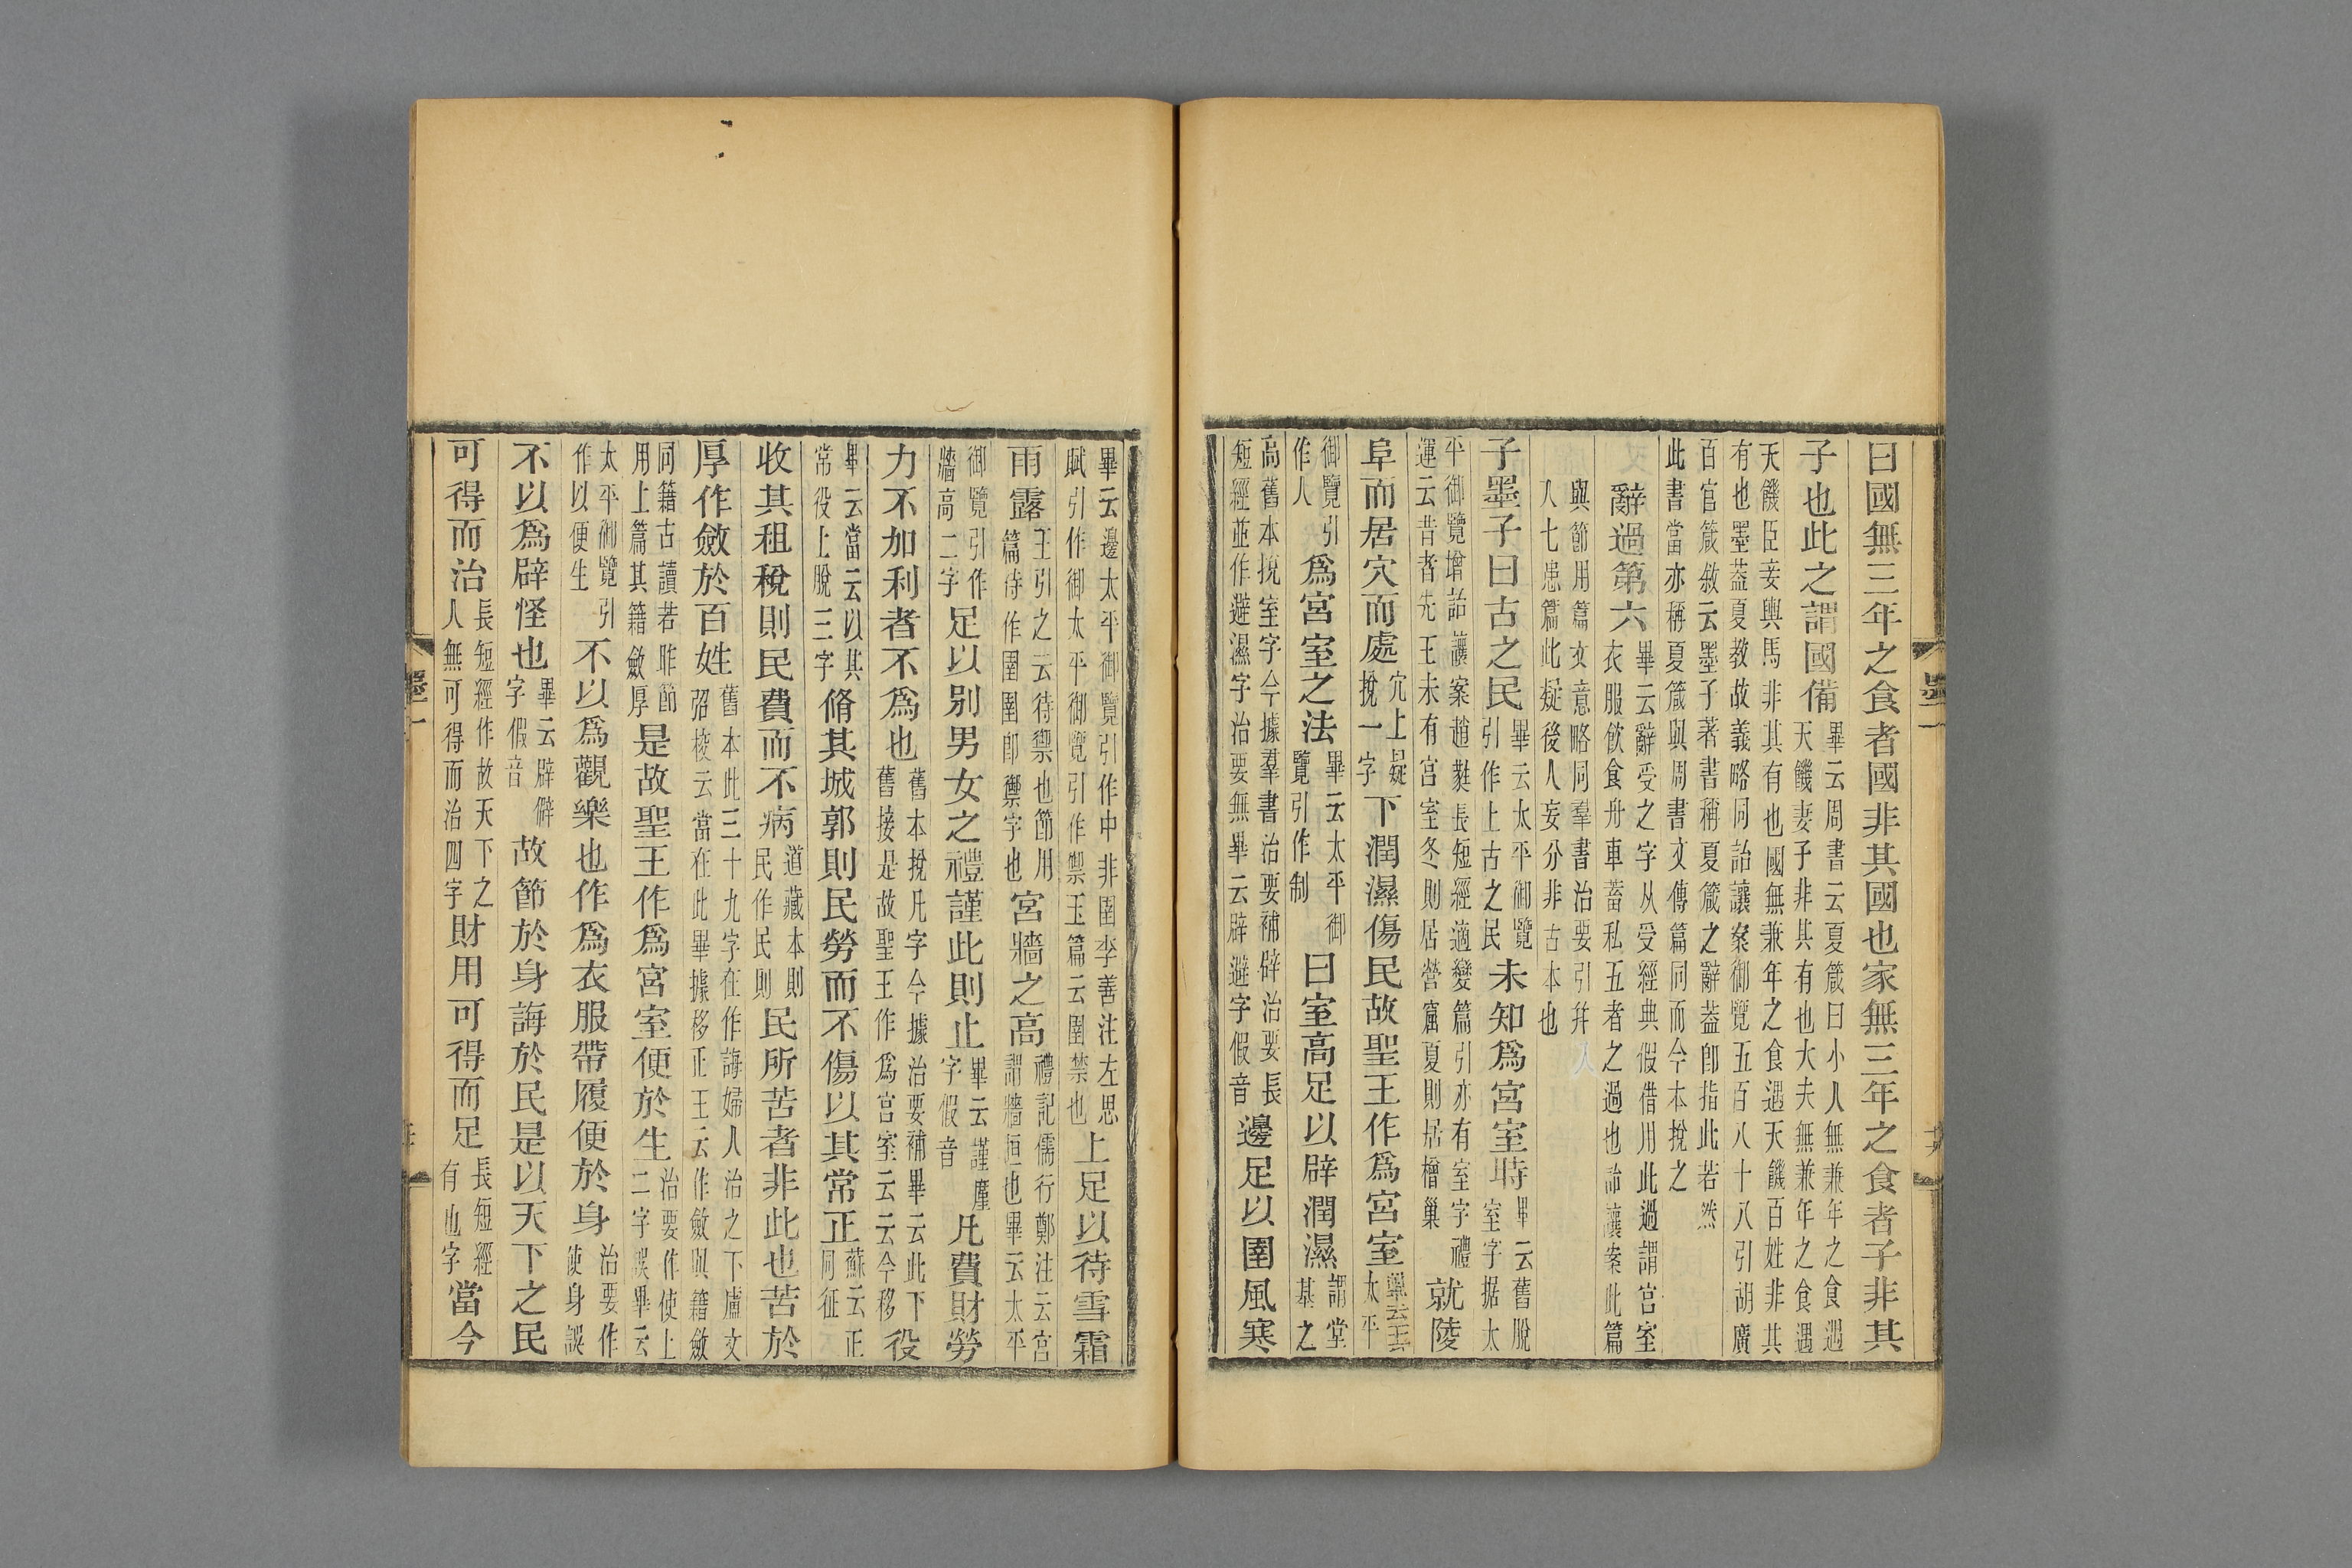 曰國無三年之食者國非其國也家無三年之食者子非其
子也此之謂國備畢云周書云夏箴曰小人無兼年之食遇天饑妻子非其有也大夫無兼年之食遇
天饑臣妾輿馬非其有也國無兼年之食遇天饑百姓非其有也墨蓋夏教故義略同詒讓案御覽五百八十八引胡廣
百官箴敘云墨子著書稱夏箴之辭蓋卽指此若然此書當亦稱夏箴與周書文傳篇同而今本挩之
辭過第六畢云辭受之字从受經典假借用此過謂宮室衣服飲食舟車蓄私五者之過也詒讓案此篇
與節用篇文意略同羣書治要引幷入七患篇此疑後人妄分非古本也
子墨子曰古之民畢云太平御覽引作上古之民未知爲宮室時畢云舊脫室字据太
平御覽增詒讓案趙蕤長短經適變篇引亦有室字禮運云昔者先王未有宮室冬則居營窟夏則居橧巢就陵
阜而居穴而處穴上疑挩一字下潤濕傷民故聖王作爲宮室畢云王太平
御覽引作人爲宮室之法畢云太平御覽引作制曰室高足以辟潤濕謂堂基之
高舊本挩室字今據羣書治要補辟治要長短經並作避濕字治要無畢云辟避字假音邊足以圉風寒
畢云邊太平御覽引作中非圉李善注左思賦引作御太平御覽引作禦玉篇云圉禁也上足以待雪霜
雨露王引之云待禦也節用篇待作圉圉卽禦字也宮牆之高禮記儒行鄭注云宮謂牆垣也畢云太平
御覽引作牆高二字足以別男女之禮謹此則止畢云謹廑字假音凡費財勞
力不加利者不爲也舊本挩凡字今據治要補畢云此下舊接是故聖王作爲宮室云云今移役
畢云當云以其常役上脫三字脩其城郭則民勞而不傷以其常正蘇云正同征
收其租稅則民費而不病道藏本則民作民則民所苦者非此也苦於
厚作斂於百姓舊本此三十九字在作誨婦人治之下盧文弨校云當在此畢據移正王云作斂與籍斂
同籍古讀若昨節用上篇其籍斂厚是故聖王作爲宮室便於生治要作使上二字誤畢云
太平御覽引作以便生不以爲觀樂也作爲衣服帶履便於身治要作使身誤
不以爲辟怪也畢云辟僻字假音故節於身誨於民是以天下之民
可得而治長短經作故天下之人無可得而治四字財用可得而足長短經有也字當今
墨一
墨一